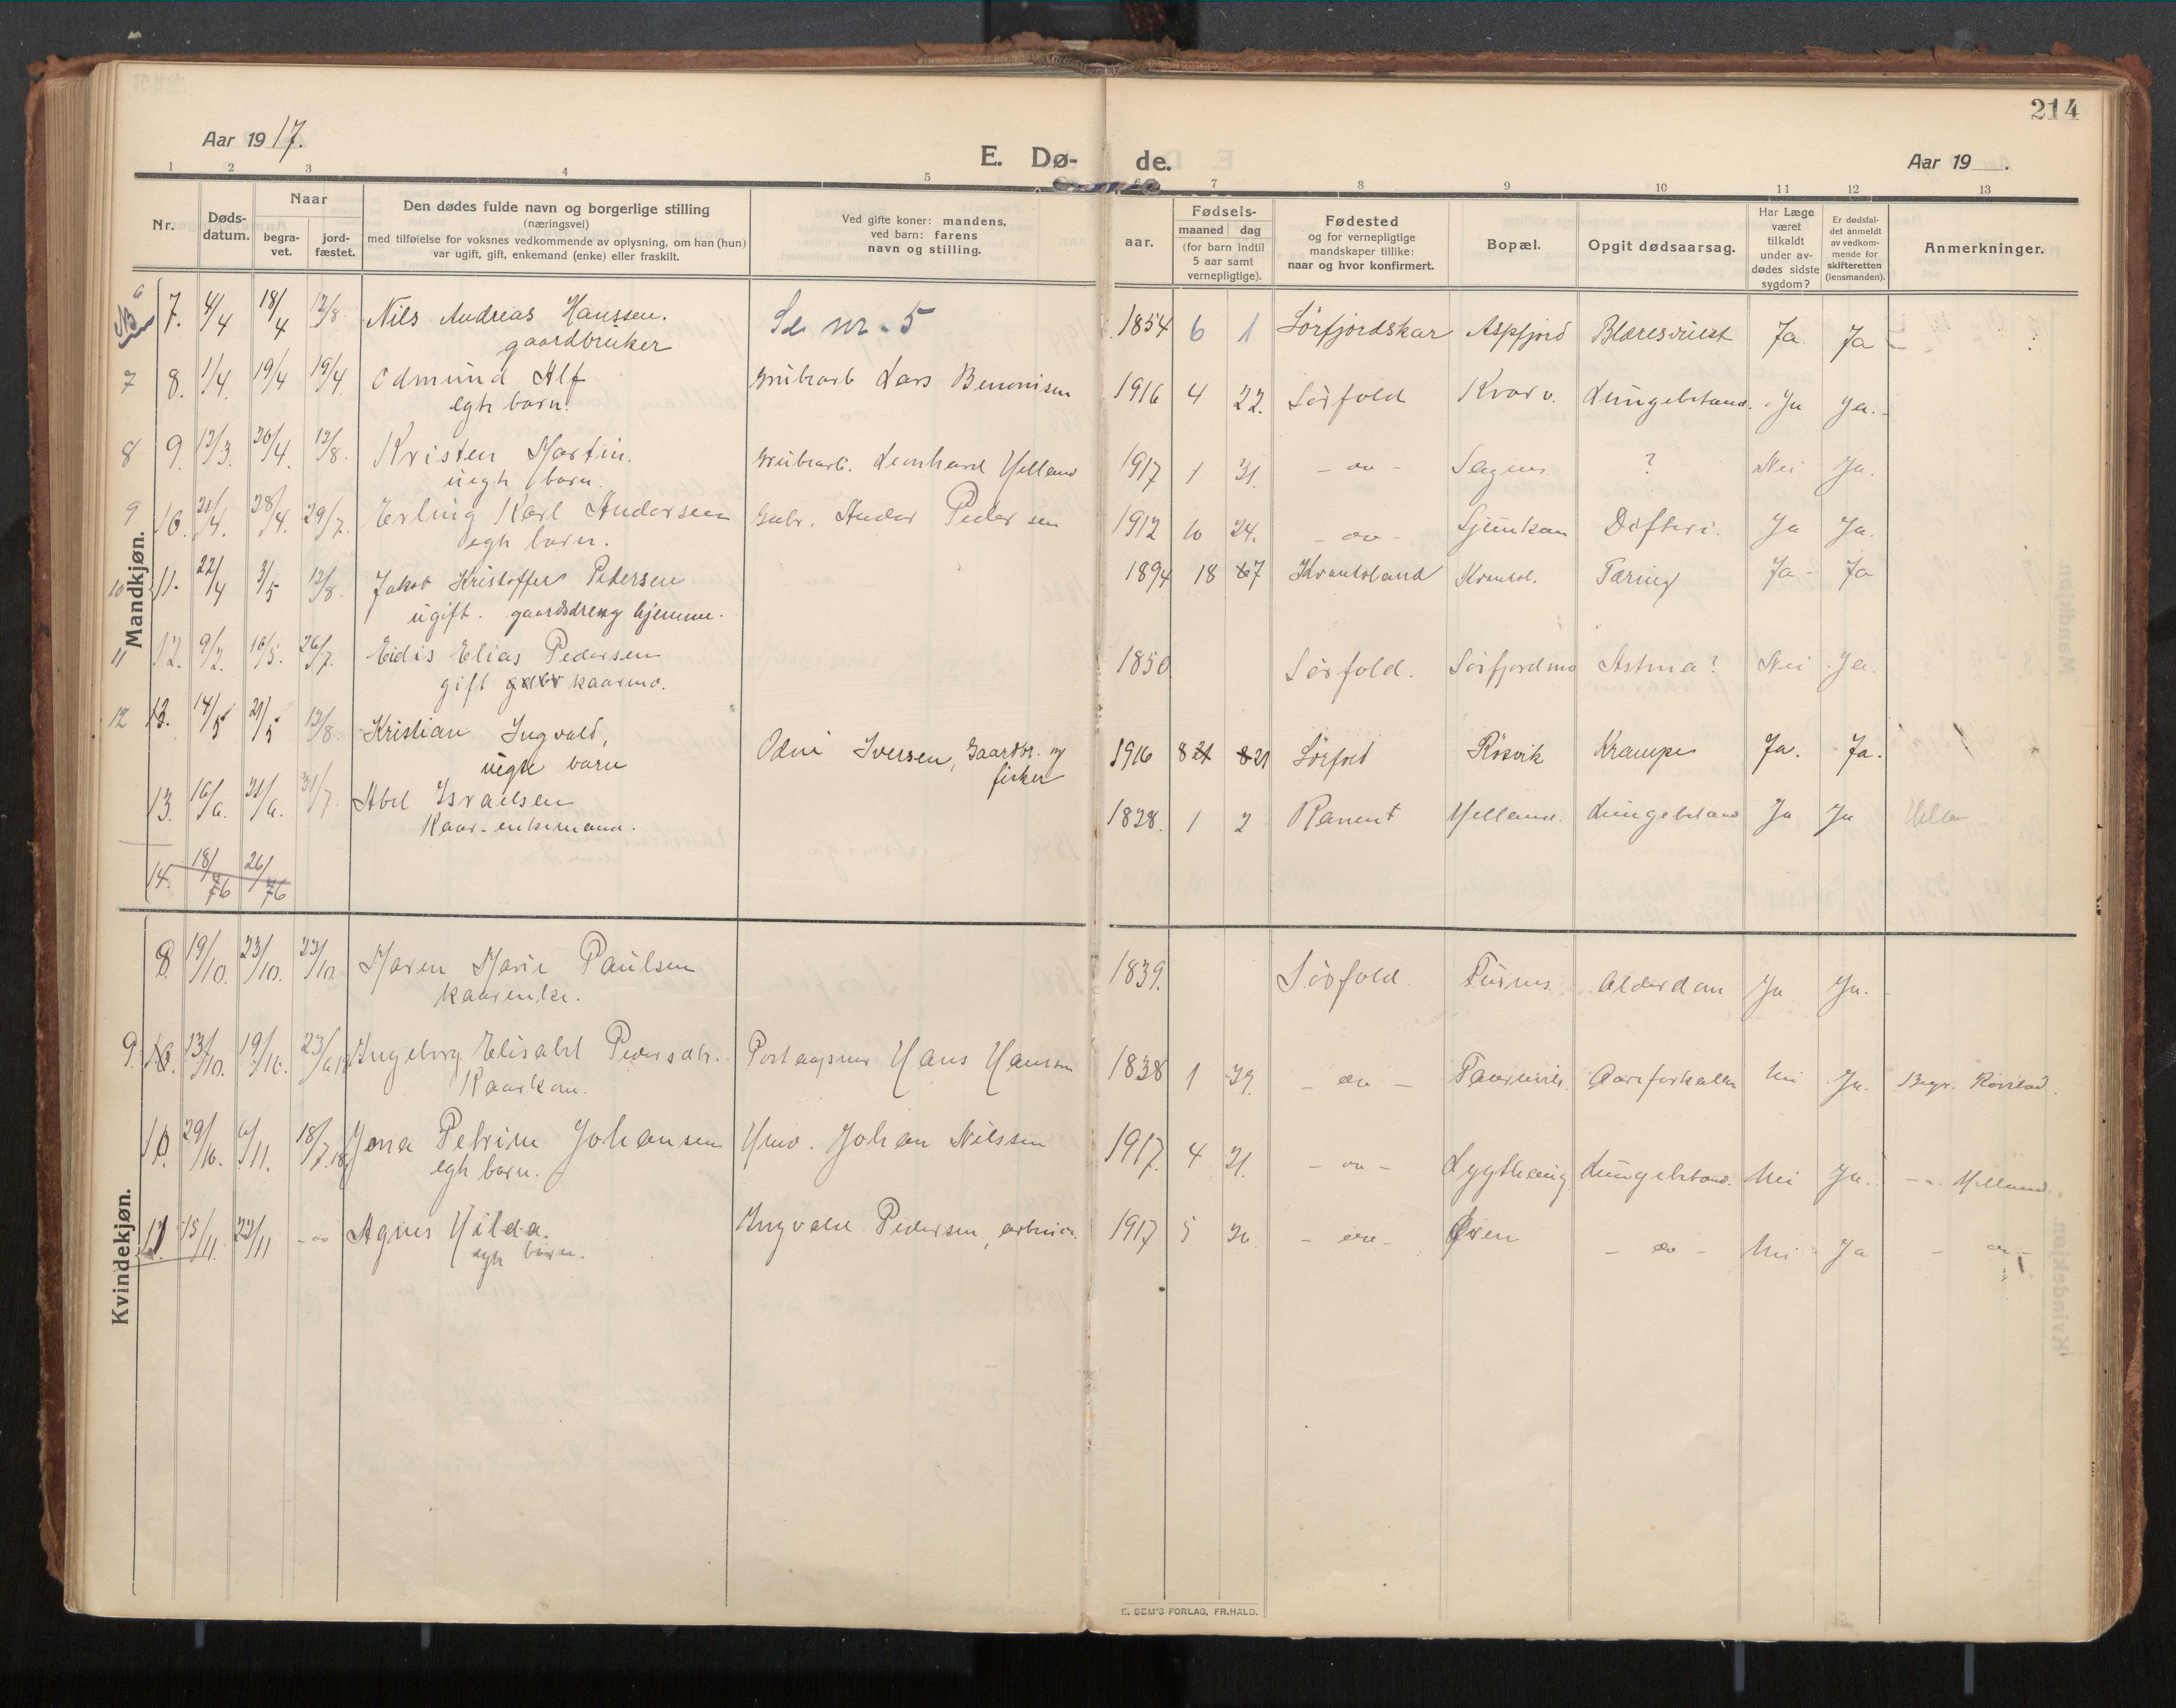 214
Aar 1917.
E. Dø- de.
Aar 19 .
1 2 3 4 5 6 7 8 9 10 11 12 13
Nr.
Døds-
datum.
Naar
begra-
vet.
jord-
fæstet.
Den dødes fulde navn og borgerlige stilling
(næringsvei)
med tilføielse for voksnes vedkommende av oplysning, om han (hun)
var ugift, gift, enkemand (enke) eller fraskilt.
Ved gifte koner: mandens,
ved barn: farens
navn og stilling.
aar.
Fødsels-
maaned dag
(for barn indtil
5 aar samt
vernepligtige).
Fødested
og for vernepligtige
mandskaper tillike:
naar og hvor konfirmert.
Bopæl.
Opgit dødsaarsag.
Har Læge
været
tilkaldt
under av-
dødes sidste
sygdom?
Er dødsfal-
det anmeldt
av vedkom-
mende for
skifteretten
(lensmanden).
Anmerkninger.
Mandkjøn.
6 NB 7. 4/4 18/4 12/8 Nils Andreas Hanssen. Se nr. 5 1854 6 1 Sørfjordskar Aspfjord Ja Ja
gaardbruker
7 8. 1/4. 19/4 19/4. Odmund Alf Grubearb Lars Benonisen 1916 4 22. Sørfold Kvarv. Lungebetænd. Ja Ja.
egte barn.
8 9. 12/3. 30/4. 12/8. Kristen Martin. Grubearb. Leonhard Helland 1917 1 31. - " - ? Nei Ja.
uegte barn.
9 10. 21/4. 28/4. 29/7. Erling Karl Andersen Gbr. Ander Pedersen 1912 10 24. - " - Difteri. Ja Ja.
egte barn.
10 11. 22/4 3/5 12/8. Jakob Kristoffer Pedersen 1894 18 7 Tæring Ja Ja
ugift. gaardsdreng hjemme.
11 12. 9/2. 16/5. 26/7. Eidis Elias Pedersen 1850 Sørfold. Sørfjordmo Astma? Nei Ja.
gift kaarmd.
12 13. 14/5 21/5 12/8. Kristian Ingvald, Odin Iversen, Gaardbr. og 1916 8 21 Sørfold Røsvik Krampe Ja. Ja.
uegte barn fisker
13. 16/6. 21/6. 31/7. Abel Israelsen 1828. 1 2 Helland. Lungebetænd Ja Ja
Kaar-enkemand.
14. 18/6 26/6
Kvindekjøn.
8 19/10. 23/10. 23/10. Maren Marie Paulsen 1839. Sørfold. Alderdom Ja Ja.
kaarenke.
9. 13/10. 19/10. Ingeborg Elisabet Pedersdtr. Hans Hansen 1838 1 - " - Nei Ja.
Kaarkone.
10. 29/10. 6/11. 18/7.18 Jona Petrine Johansen Johan Nilssen 1917. 4 21. - " - Lungebetænd. Nei Ja. - " - Helland.
egte barn.
11. 15/11. 22/11 - " Agnes Hilda. Ingvald Pedersen, arbeider. 1917 5 - " - Øren - " - Nei Ja - " -
egte barn.
E. SEM'S FORLAG, FR.HALD.